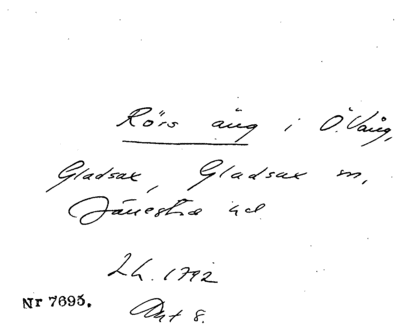 Rörs äng i Ö. Vång,
Gladsax, Gladsax sn,
Järrestads hd
Lh. 1792
Akt 8.
Nr 7695.